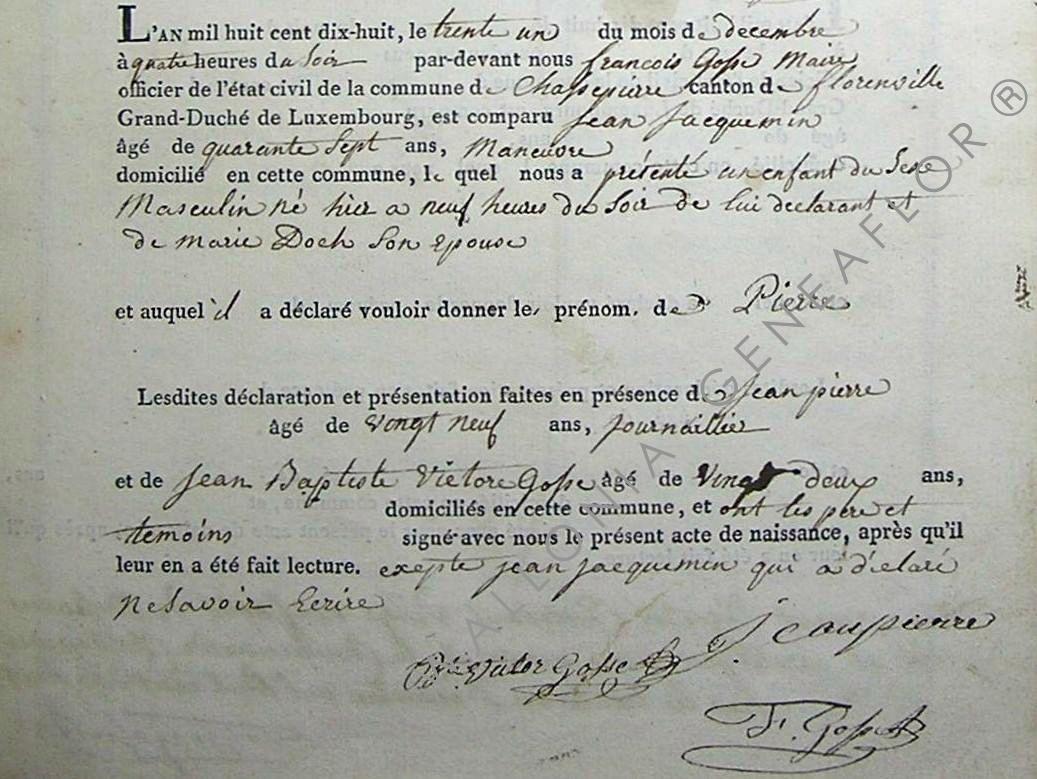 L'AN mil huit cent dix-huit, le trente un du mois de decembre
à quatre heures du Soir par-devant nous francois Gosse Maire
officier de l'état civil de la commune de Chassepierre canton de florenville
Grand-Duché de Luxembourg, est comparu Jean Jacquemin
âgé de quarante Sept ans, Maneuvre
domicilié en cette commune, le quel nous a présenté un enfant du Sexe
Masculin né hier a neuf heures du Soir de lui declarant et
de marie Doch Son Epouse
et auquel il a déclaré vouloir donner le prénom de Pierre
Lesdites déclaration et présentation faites en présence de Jean pierre
âgé de vingt neuf ans, Journaillier
et de Jean Baptiste Victore Gosse âgé de Vingt deux ans,
domiciliés en cette commune, et ont les pere et
temoins signé avec nous le présent acte de naissance, après qu'il
leur en a été fait lecture. exepte jean jacquemin qui a déclaré
ne Savoir Ecrire
Jean pierre
Victor Gosse
F. Gosse
WALLONIA GENEAFLOR ®